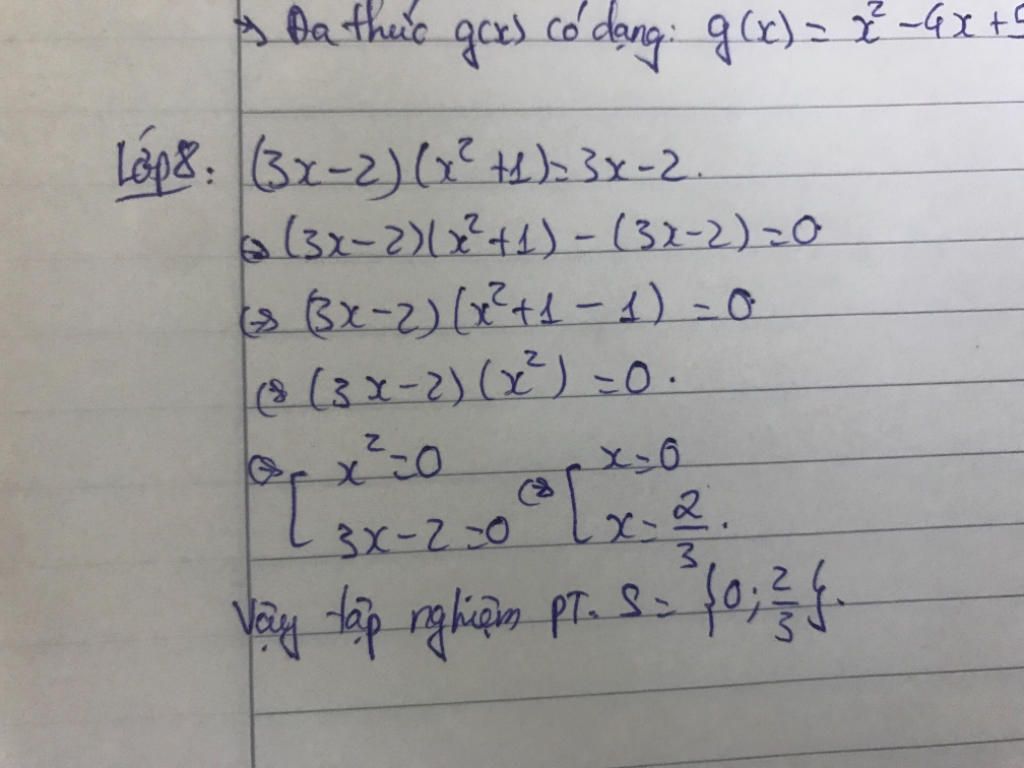 → Đa thức g(x) có dạng: g(x) = x² - 4x + 5
Lớp 8: (3x-2)(x²+1) = 3x-2.
⇔ (3x-2)(x²+1) - (3x-2) = 0
⇔ (3x-2)(x²+1-1) = 0
⇔ (3x-2)(x²) = 0.
⇔ [ x² = 0 ⇔ [ x = 0
3x-2 = 0 x = 2/3.
Vậy tập nghiệm PT. S = {0; 2/3}.